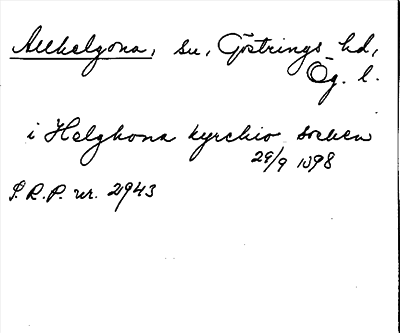 Allhelgona, sn, Göstrings hd,
Ög. l.
i Helghona kyrchio sochen
29/9 1398
S.R.P. nr. 2943